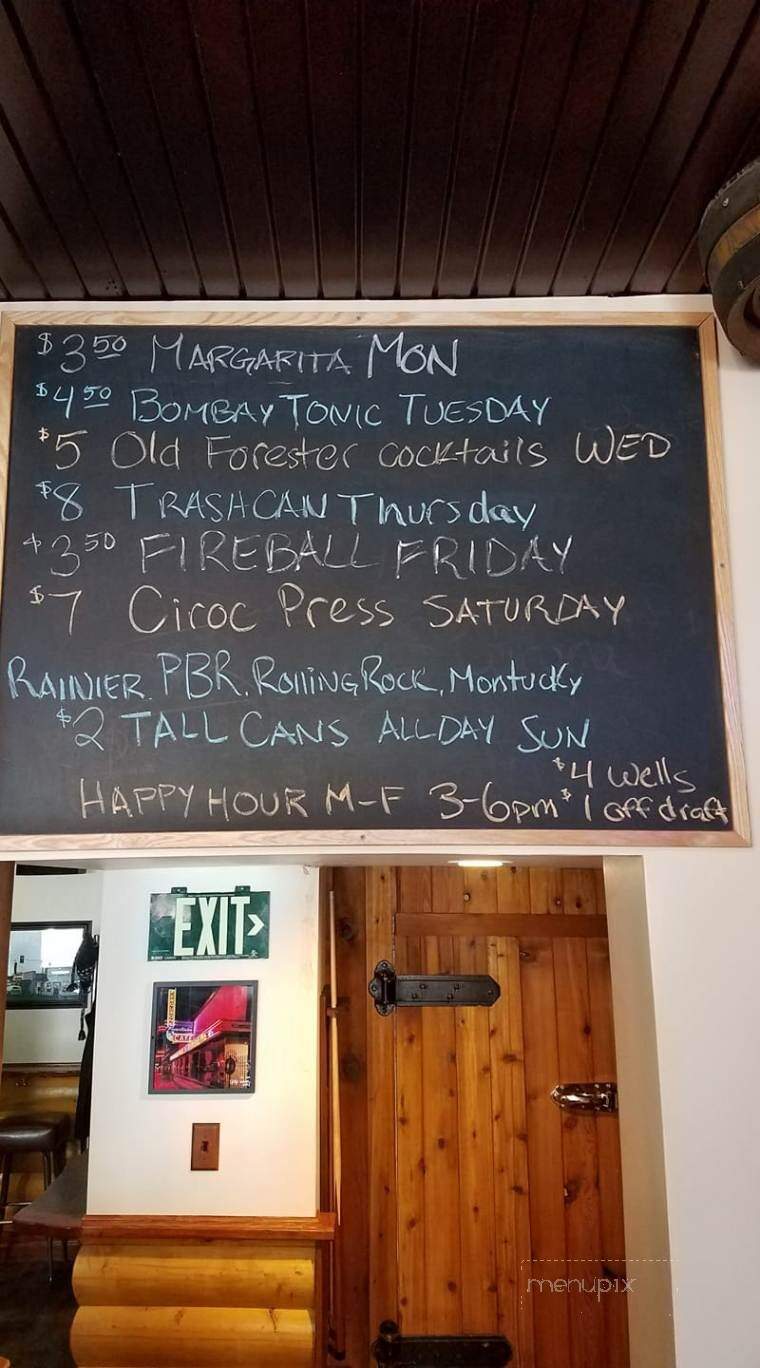 $3 50 MARGARITA MON
$4 50 BOMBAY TONIC TUESDAY
$5 Old Forester cocktails WED
$8 TRASHCAN Thursday
$3 50 FIREBALL FRIDAY
$7 Ciroc Press SATURDAY
RAINIER, PBR, ROllING ROCK, Montucky
$2 TALL CANS ALL DAY SUN
$4 wells
HAPPY HOUR M-F 3-6pm $1 off draft
EXIT
CAFE
menupix